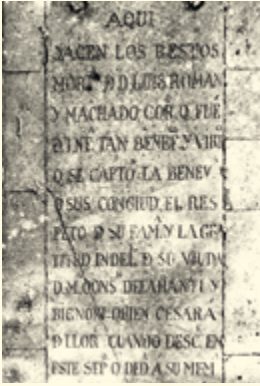 AQUI
YACEN LOS RESTOS
MORT. D. D. LUIS ROMAN
Y MACHADO COR. Q. FUE
D. I. NE. TAN BENEF. Y VIRT
Q SE CAPTO LA BENEV.
D SUS CONCIUD. EL RES
PETO D SU FAM. Y LA GRA
TITUD INDEL. D SU VIUDA
D. M. CONS. DELARANTI Y
BIGNONI QUIEN CESARA
D LLOR CUANDO DESC. EN
ESTE SEP. Q DED. A SU MEM.